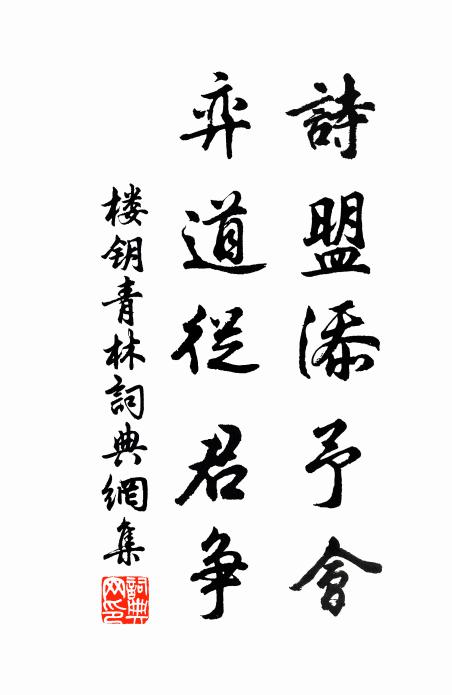 詩盟添予會
弈道從君爭
楼钥青林詞典網集
詞典网印